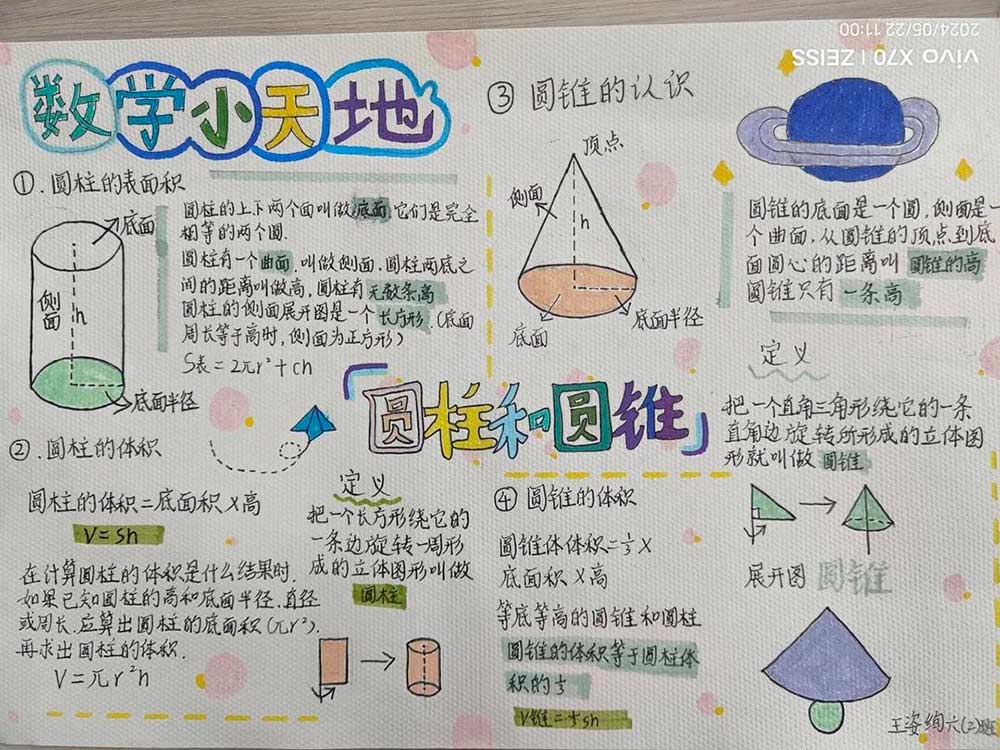 数学小天地
①.圆柱的表面积
底面
侧面
h
底面半径
圆柱的上下两个面叫做底面,它们是完全
相等的两个圆.
圆柱有一个曲面.叫做侧面,圆柱两底之
间的距离叫做高,圆柱有无数条高
圆柱的侧面展开图是一个长方形.(底面
周长等于高时,侧面为正方形)
S表=2πr²+ch
②.圆柱的体积
圆柱的体积=底面积×高
V=sh
在计算圆柱的体积是什么结果时.
如果已知圆柱的高和底面半径.直径
或周长.应算出圆柱的底面积(πr²).
再求出圆柱的体积.
V=πr²h
定义
把一个长方形绕它的
一条边旋转一周形
成的立体图形叫做
圆柱
圆柱和圆锥
③ 圆锥的认识
顶点
侧面
h
底面
底面半径
圆锥的底面是一个圆,侧面是一
个曲面,从圆锥的顶点到底
面圆心的距离叫圆锥的高
圆锥只有一条高
定义
把一个直角三角形绕它的一条
直角边旋转所形成的立体图
形就叫做圆锥
④ 圆锥的体积
圆锥体体积=⅓×
底面积×高
等底等高的圆锥和圆柱
圆锥的体积等于圆柱体
积的⅓
V锥=⅓sh
展开图 圆锥
王姿绚六(2)班
vivo X70 | ZEISS
2024/05/22 11:00